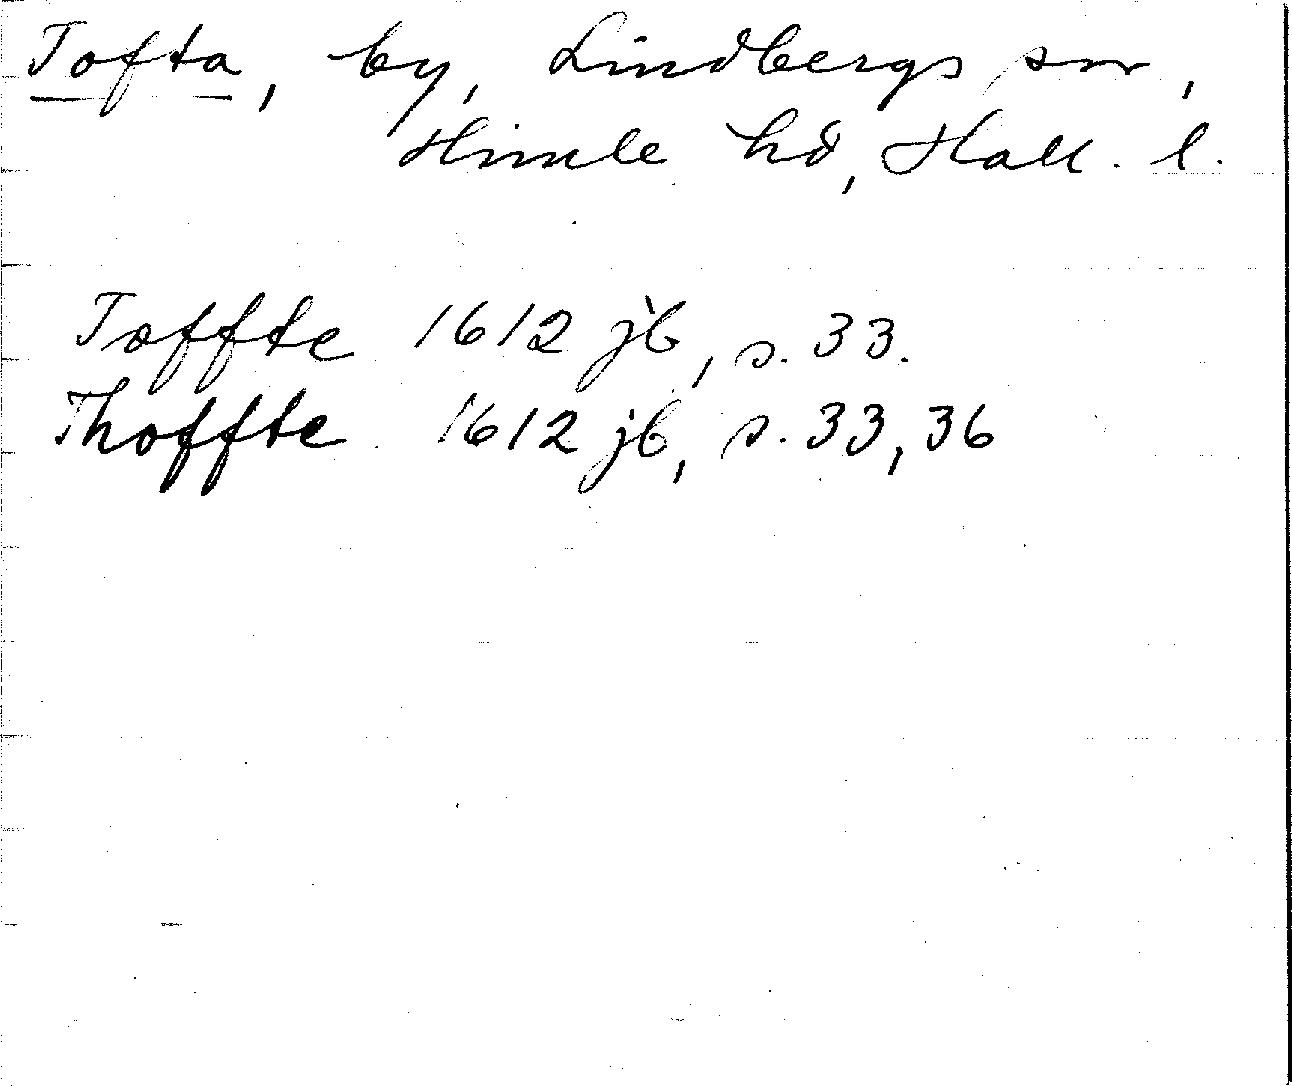 Tofta, by, Lindbergs sn,
Himle hd, Hall. l.
Toffte 1612 jb, s. 33.
Thoffte 1612 jb, s. 33, 36